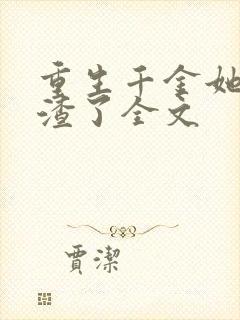 重生千金她
渣了全文
賈潔